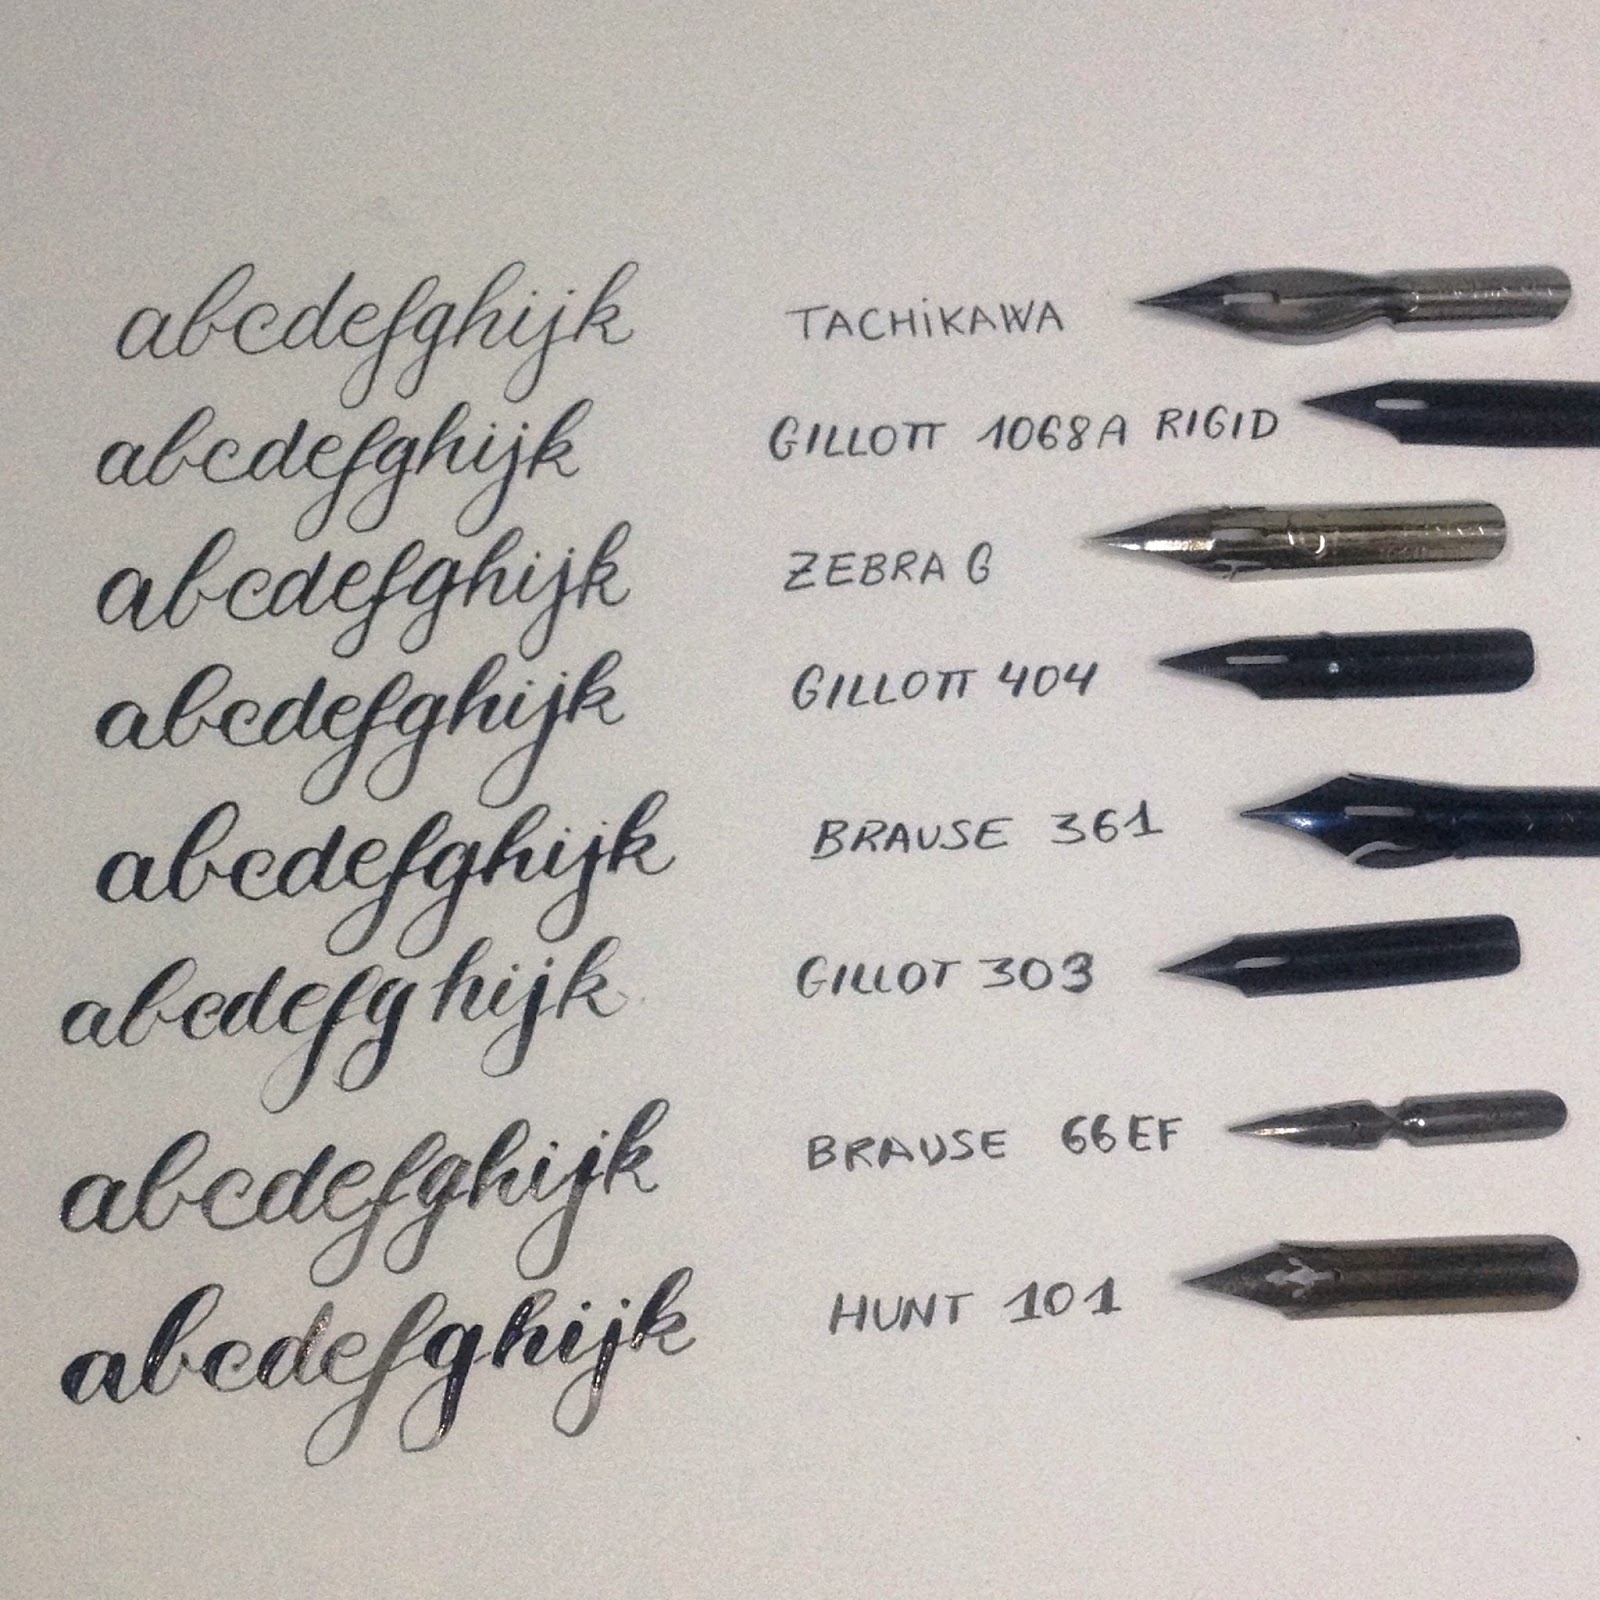 abcdefghijk TACHiKAWA
abcdefghijk GILLOTT 1068A RIGID
abcdefghijk ZEBRA G
abcdefghijk GILLOTT 404
abcdefghijk BRAUSE 361
abcdefghijk GILLOT 303
abcdefghijk BRAUSE 66EF
abcdefghijk HUNT 101